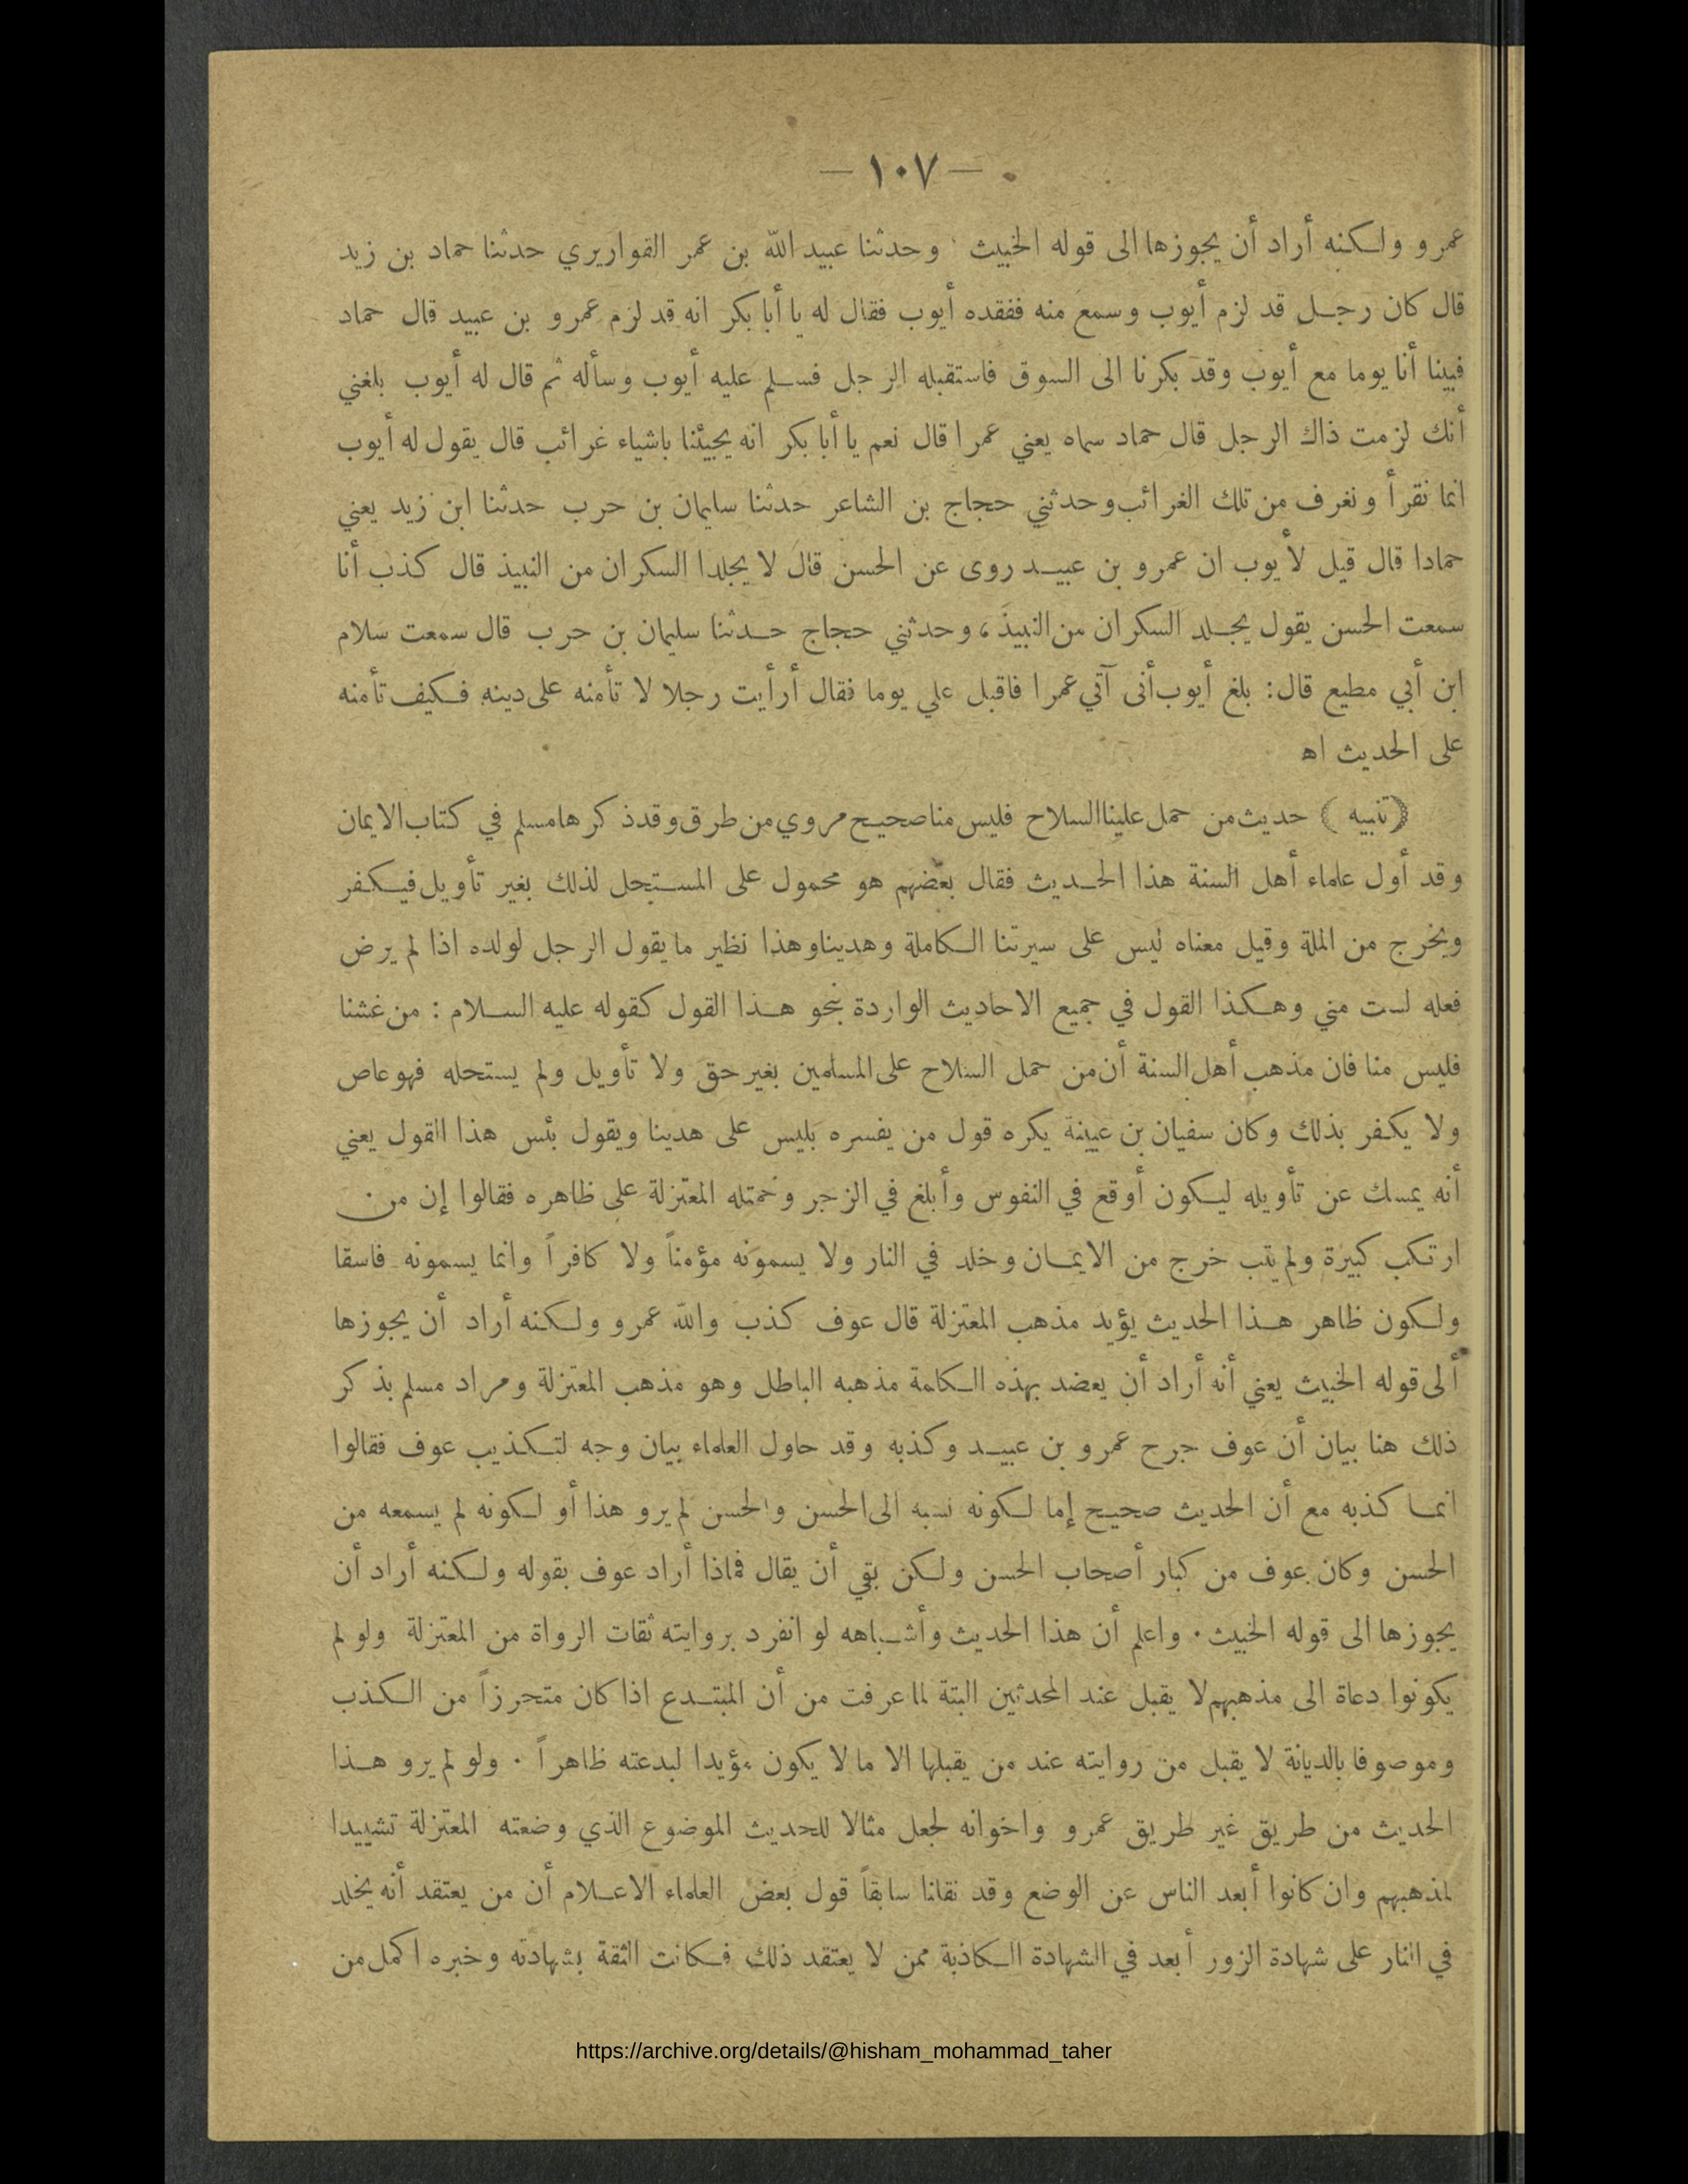 — ١٠٧ —
عمرو ولكنه أراد أن يجوزها الى قوله الخبيث . وحدثنا عبيد الله بن عمر القواريري حدثنا حماد بن زيد
قال كان رجل قد لزم أيوب وسمع منه ففقده أيوب فقال له يا أبا بكر انه قد لزم عمرو بن عبيد قال حماد
فبينا أنا يوما مع أيوب وقد بكرنا الى السوق فاستقبله الرجل فسلم عليه أيوب وسأله ثم قال له أيوب بلغني
أنك لزمت ذاك الرجل قال حماد سماه يعني عمرا قال نعم يا أبا بكر انه يجيئنا باشياء غرائب قال يقول له أيوب
انما نفرأ ونغرف من تلك الغرائب وحدثني حجاج بن الشاعر حدثنا سليمان بن حرب حدثنا ابن زيد يعني
حمادا قال قيل لأيوب ان عمرو بن عبيد روى عن الحسن قال لا يجلدا السكران من النبيذ قال كذب أنا
سمعت الحسن يقول يجلد السكران من النبيذ ، وحدثني حجاج حدثنا سليمان بن حرب قال سمعت سلام
ابن أبي مطيع قال : بلغ أيوب أنى آتي عمرا فاقبل علي يوما فقال أرأيت رجلا لا تأمنه على دينه فكيف تأمنه
على الحديث اه
( تنبيه ) حديث من حمل علينا السلاح فليس منا صحيح مروي من طرق وقد ذكرها مسلم في كتاب الايمان
وقد أول علماء أهل السنة هذا الحديث فقال بعضهم هو محمول على المستحل لذلك بغير تأويل فيكفر
ويخرج من الملة وقيل معناه ليس على سيرتنا الكاملة وهدينا وهذا نظير ما يقول الرجل لولده اذا لم يرض
فعله لست مني وهكذا القول في جميع الاحاديث الواردة بنحو هذا القول كقوله عليه السلام : من غشنا
فليس منا فان مذهب أهل السنة أن من حمل السلاح على المسلمين بغير حق ولا تأويل ولم يستحله فهو عاص
ولا يكفر بذلك وكان سفيان بن عيينة يكره قول من يفسره بليس على هدينا ويقول بئس هذا القول يعني
أنه يمسك عن تأويله ليكون أوقع في النفوس وأبلغ في الزجر وحملته المعتزلة على ظاهره فقالوا إن من
ارتكب كبيرة ولم يتب خرج من الايمان وخلد في النار ولا يسمونه مؤمناً ولا كافراً وانما يسمونه فاسقا
ولكون ظاهر هذا الحديث يؤيد مذهب المعتزلة قال عوف كذب والله عمرو ولكنه أراد أن يجوزها
ألى قوله الخبيث يعني أنه أراد أن يعضد بهذه الكلمة مذهبه الباطل وهو مذهب المعتزلة ومراد مسلم بذكر
ذلك هنا بيان أن عوف جرح عمرو بن عبيد وكذبه وقد حاول العلماء بيان وجه لتكذيب عوف فقالوا
انما كذبه مع أن الحديث صحيح إما لكونه نسبه الى الحسن والحسن لم يرو هذا أو لكونه لم يسمعه من
الحسن وكان عوف من كبار أصحاب الحسن ولكن بقي أن يقال فماذا أراد عوف بقوله ولكنه أراد أن
يجوزها الى قوله الخبيث . واعلم أن هذا الحديث وأشباهه لو انفرد بروايته ثقات الرواة من المعتزلة ولو لم
يكونوا دعاة الى مذهبهم لا يقبل عند المحدثين البتة لما عرفت من أن المبتدع اذا كان متحرزاً من الكذب
وموصوفا بالديانة لا يقبل من روايته عند من يقبلها الا ما لا يكون مؤيدا لبدعته ظاهراً . ولو لم يرو هذا
الحديث من طريق غير طريق عمرو واخوانه لجعل مثالا للحديث الموضوع الذي وضعته المعتزلة تشييدا
لمذهبهم وان كانوا أبعد الناس عن الوضع وقد نقلنا سابقاً قول بعض العلماء الاعلام أن من يعتقد أنه يخلد
في النار على شهادة الزور أبعد في الشهادة الكاذبة ممن لا يعتقد ذلك فكانت الثقة بشهادته وخبره اكمل من
https://archive.org/details/@hisham_mohammad_taher